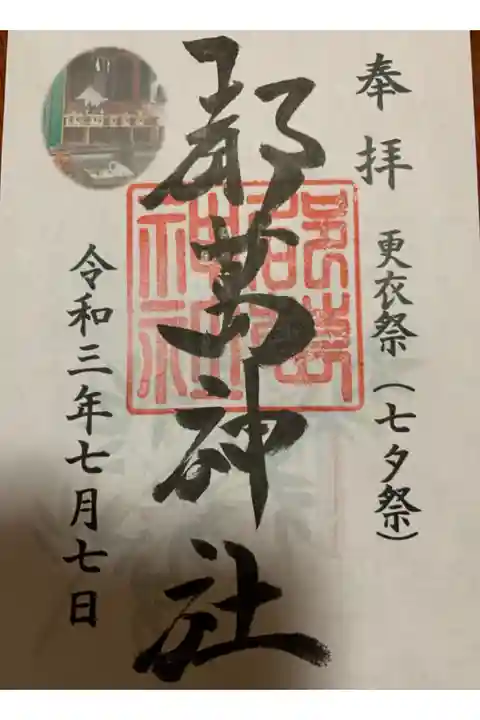 奉拝
更衣祭(七夕祭)
都萬神社
都萬神社
令和三年七月七日